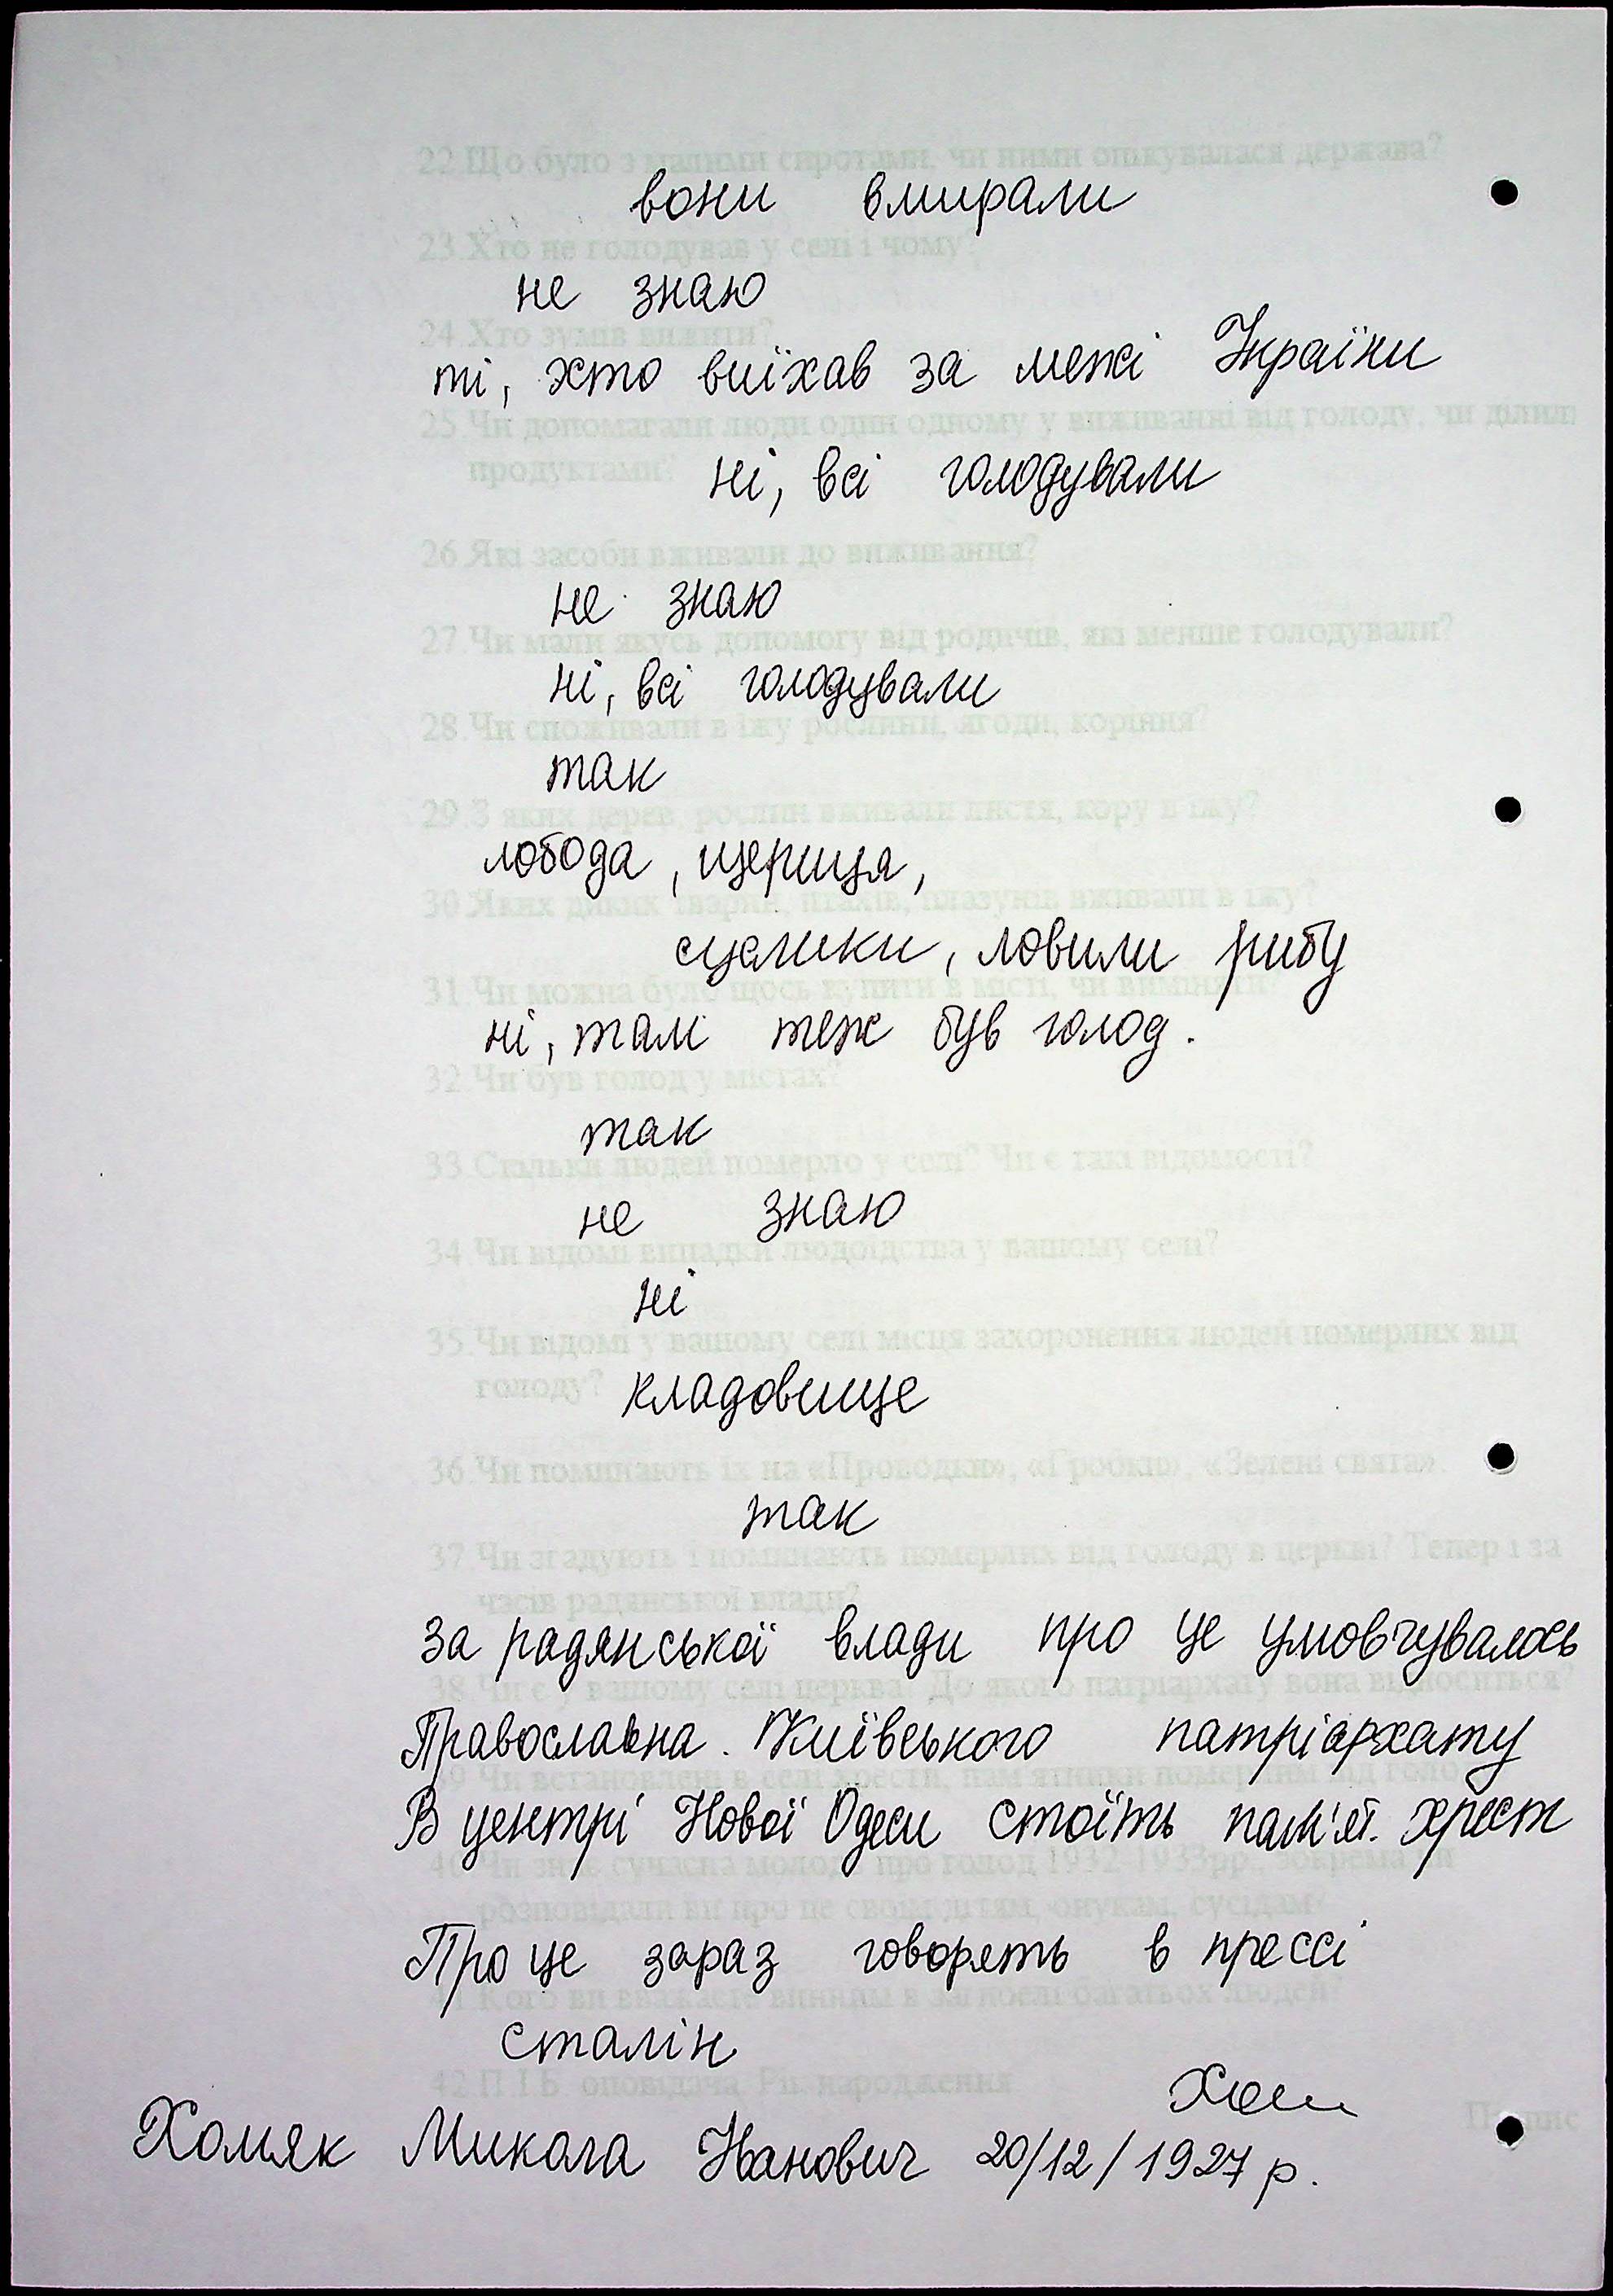 22.Що було з малими сиротами, чи ними опікувалася держава?
вони вмирали
23.Хто не голодував у селі і чому?
не знаю
24.Хто зумів вижити?
ті, хто виїхав за межі України
25.Чи допомагали люди один одному у виживанні від голоду, чи ділили
продуктами?
ні, всі голодували
26.Які засоби вживали до виживання?
не знаю
27.Чи мали якусь допомогу від родичів, які менше голодували?
ні, всі голодували
28.Чи споживали в їжу рослини, ягоди, коріння?
так
29.З яких дерев, рослин вживали листя, кору в їжу?
лобода, щериця,
30.Яких диких тварин, птахів, плазунів вживали в їжу?
суслики, ловили рибу
31.Чи можна було щось купити в місті, чи виміняти?
ні, там теж був голод.
32.Чи був голод у містах?
так
33.Скільки людей померло у селі? Чи є такі відомості?
не знаю
34.Чи відомі випадки людоїдства у вашому селі?
ні
35.Чи відомі у вашому селі місця захоронення людей померлих від
голоду?
кладовище
36.Чи поминають їх на «Проводки», «Гробки», «Зелені свята».
так
37.Чи згадують і поминають померлих від голоду в церкві? Тепер і за
часів радянської влади?
за радянської влади про це умовчувалось
38.Чи є у вашому селі церква? До якого патріархату вона відноситься?
Православна. Київського патріархату
39.Чи встановлені в селі хрести, пам'ятники померлим від голо
В центрі Нової Одеси стоїть пам'ят. хрест
40.Чи знає сучасна молодь про голод 1932-1933рр.,
розповідали ви про це своїм дітям, онукам, сусідам?
Про це зараз говорять в прессі
Кого ви вважаєте винним в загибелі багатьох людей?
сталін
42.П.І.Б. оповідача. Рік народження
Хом
Підпис
Хомяк Микола Іванович 20/12/1927 р.